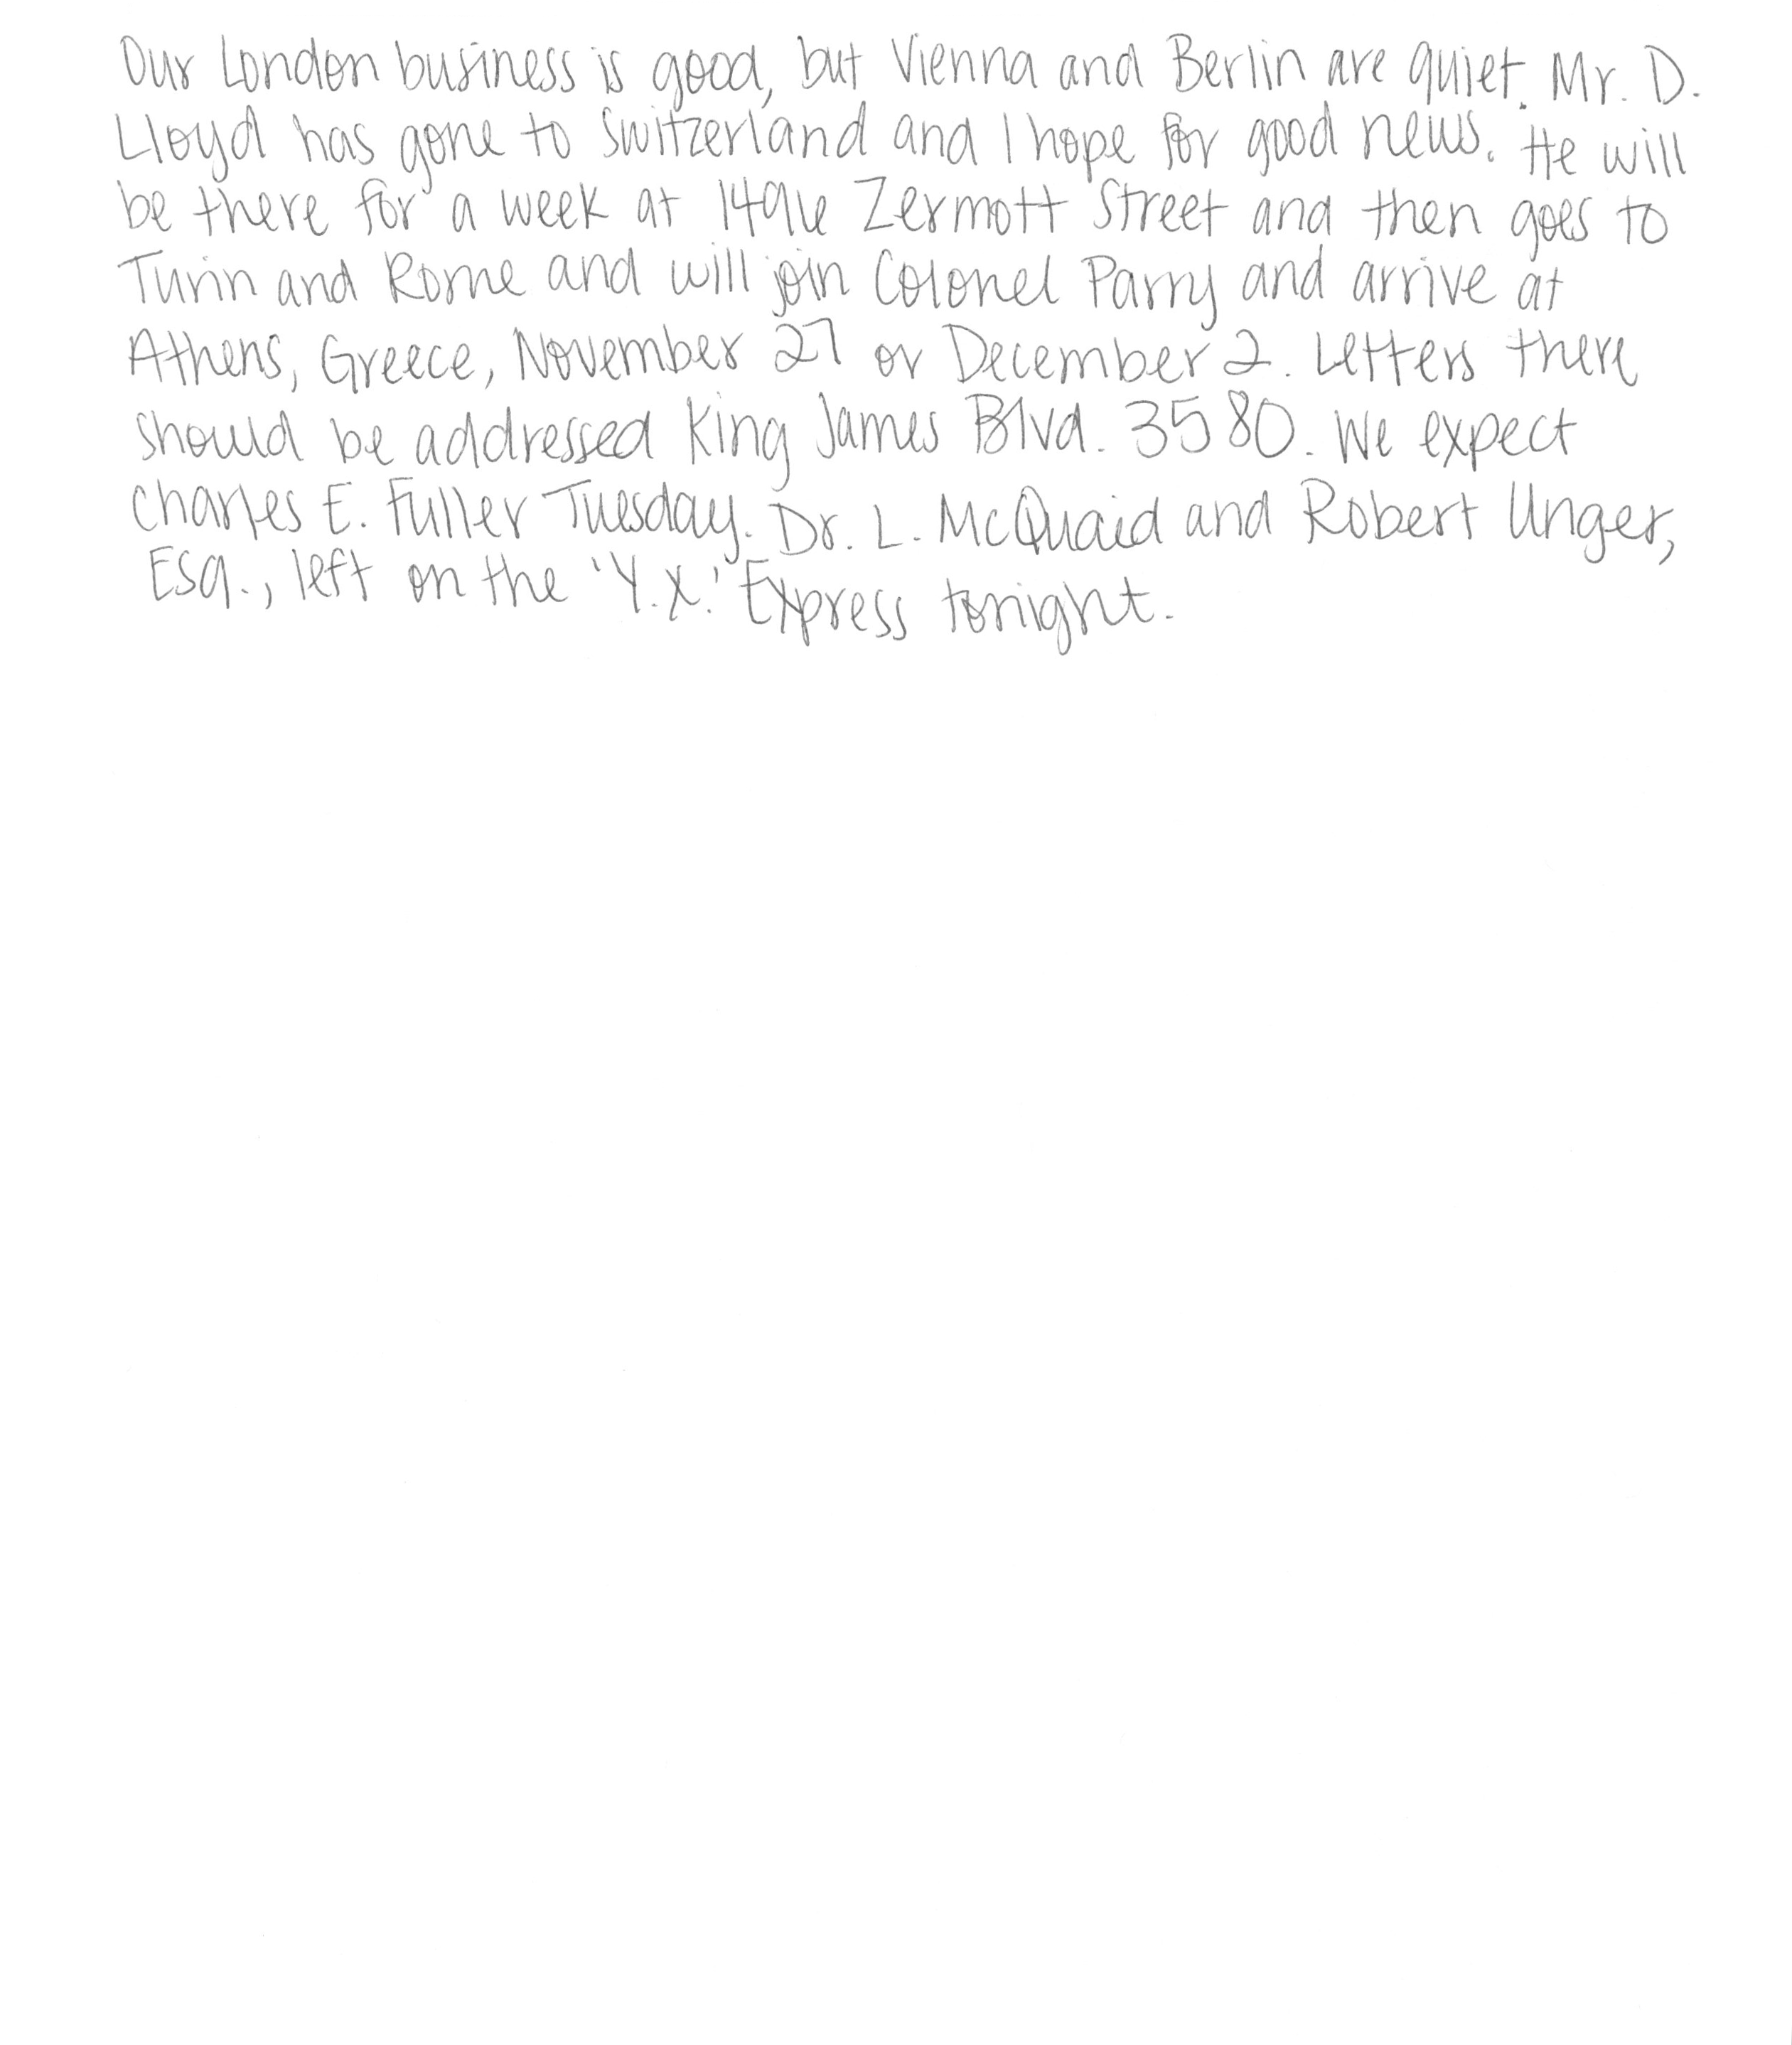 Our London business is good, but Vienna and Berlin are quiet. Mr. D.
Lloyd has gone to Switzerland and I hope for good news. He will
be there for a week at 1496 Zermott Street and then goes to
Turin and Rome and will join Colonel Parry and arrive at
Athens, Greece, November 27 or December 2. Letters there
should be addressed King James Blvd. 3580. We expect
Charles E. Fuller Tuesday. Dr. L. McQuaid and Robert Unger,
Esq., left on the 'Y.X.' Express tonight.